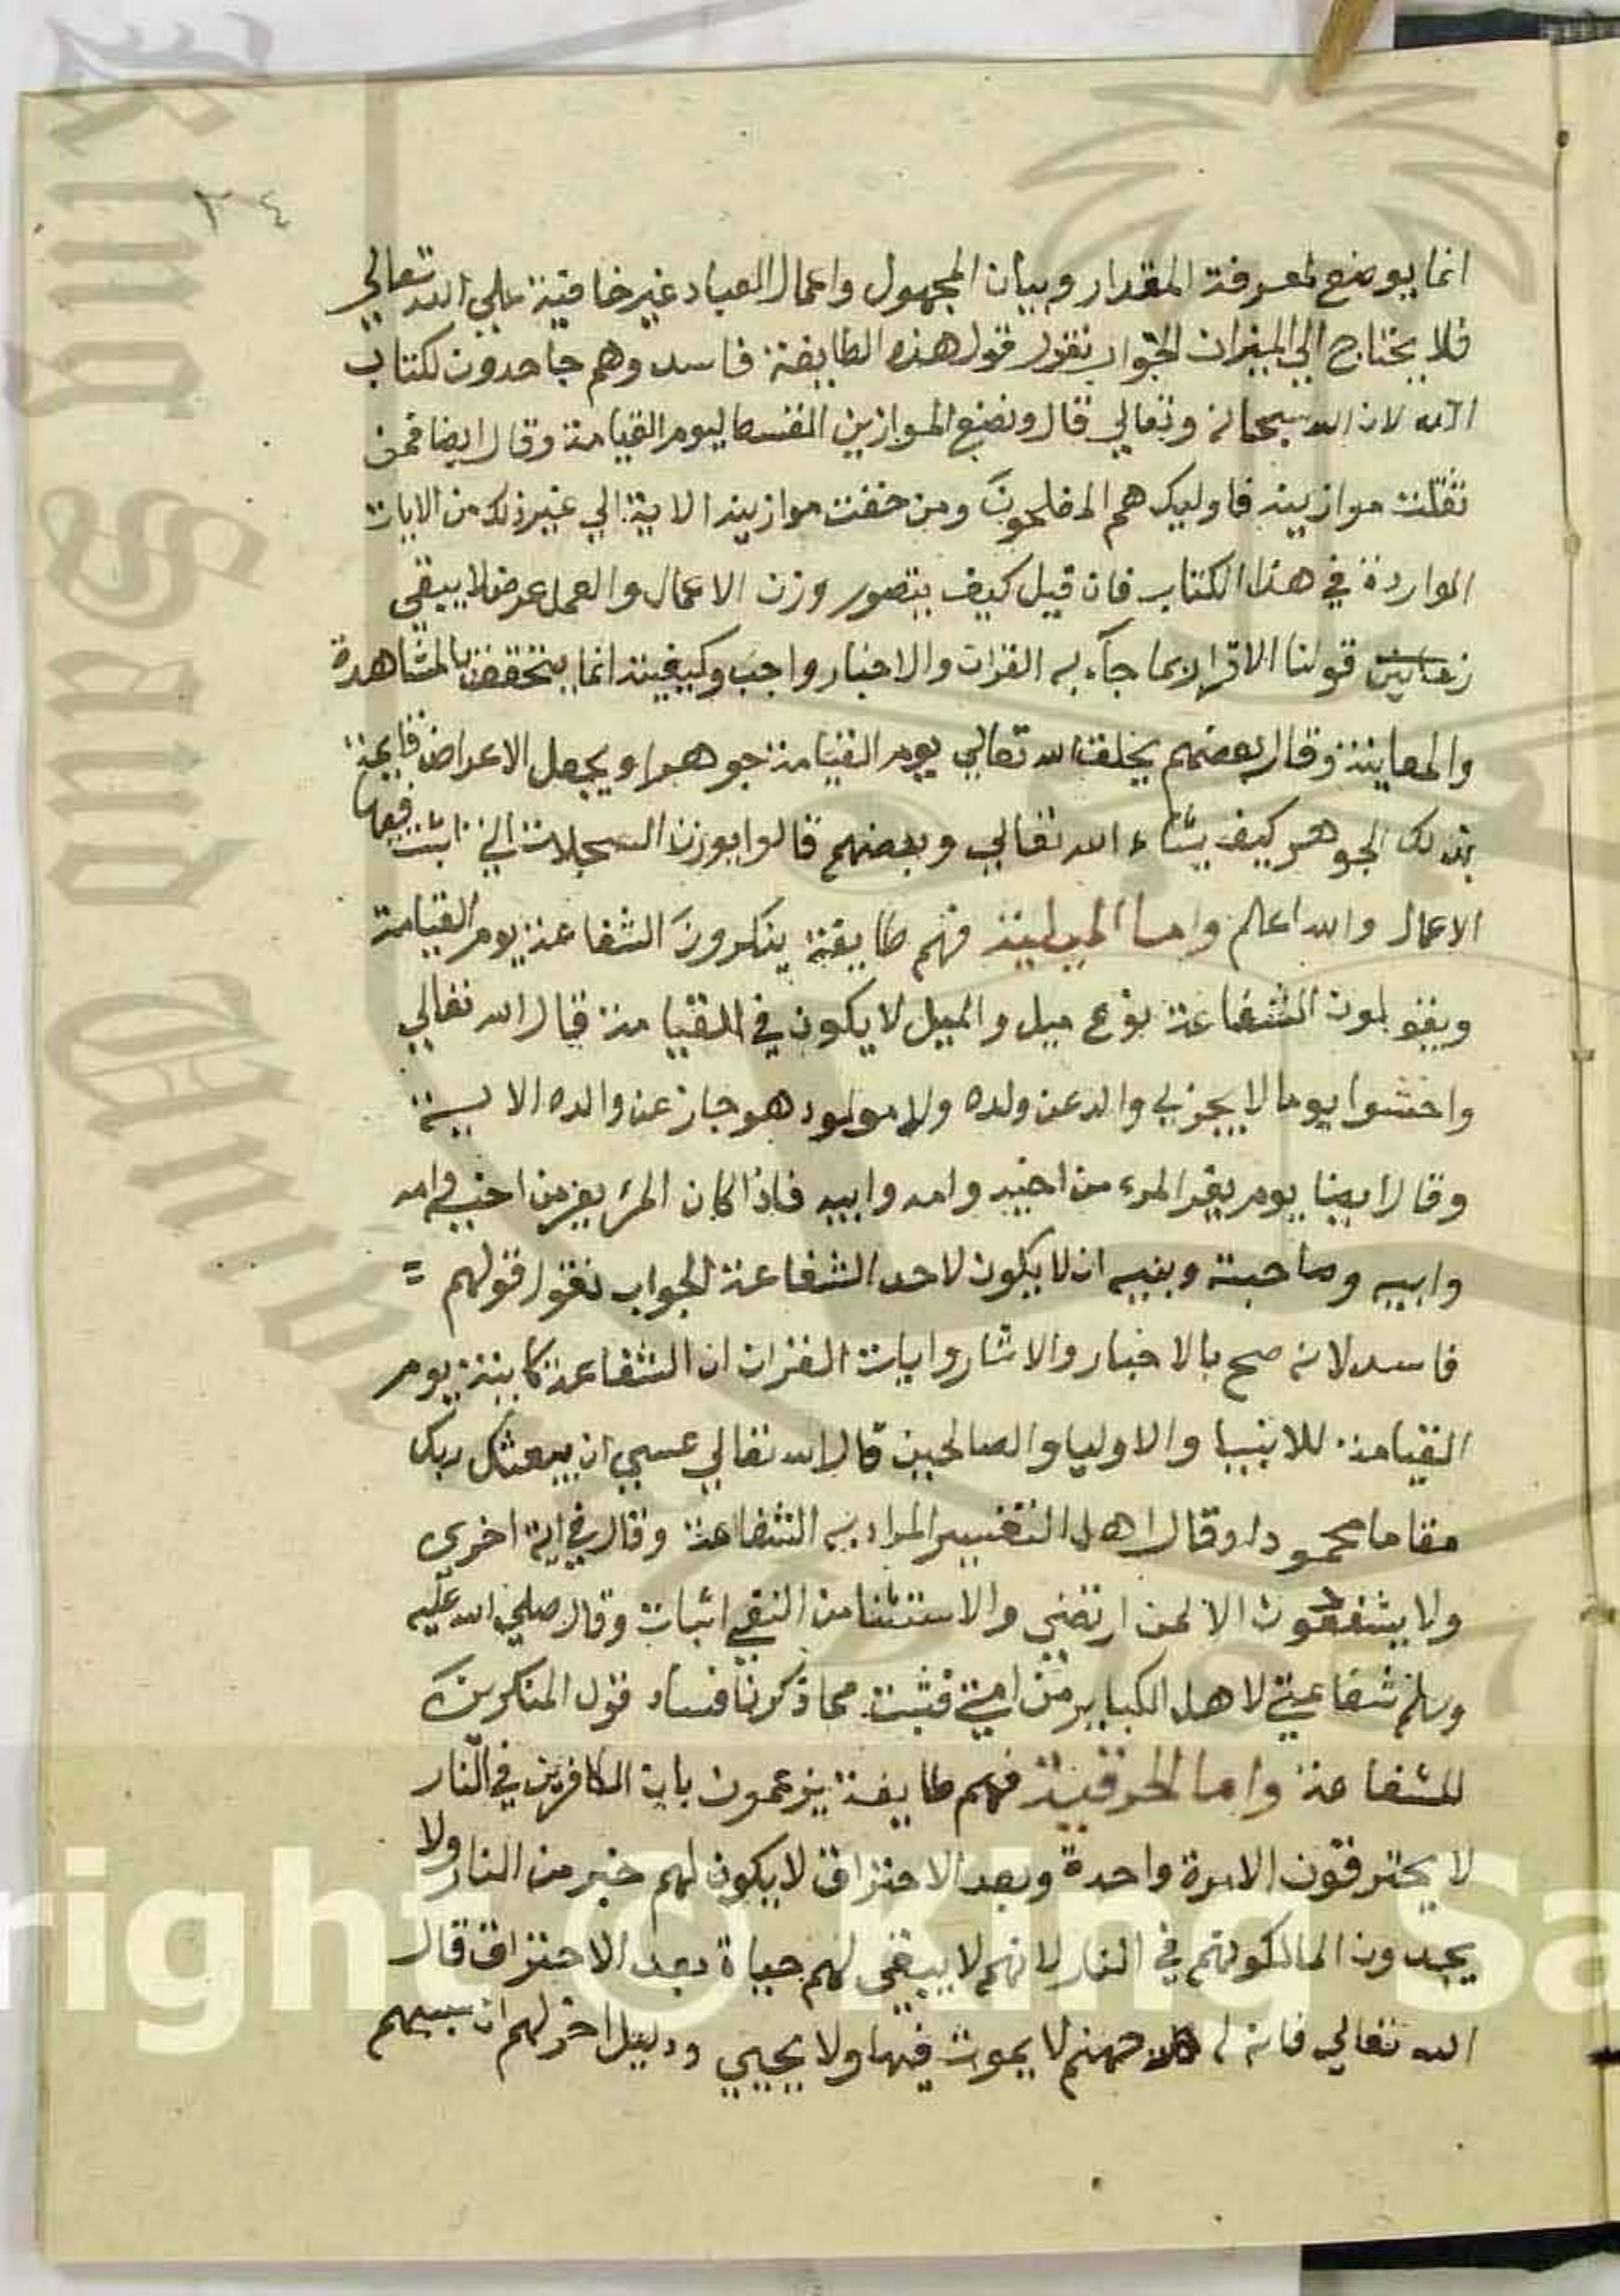 ٢٤
انما يوضع لمعرفة المقدار وبيان المجهول واعمال العباد غير خافية على الله تعالى
فلا يحتاج الى الميزان الجواب نقول قول هذه الطايفة فاسد وهم جاحدون لكتاب
الله لان الله سبحانه وتعالي قال ونضع الموازين القسط ليوم القيامة وقال ايضا فمن
ثقلت موازينه فاوليك هم المفلحون ومن خفت موازينه الاية الي غير ذلك من الايات
الواردة في هذا الكتاب فان قيل كيف يتصور وزن الاعمال والعمل عرض لا يبقي
زمانين قولنا الاقرار بما جآء به القران والاخبار واجب وكيفيته انما يتحقق بالمشاهدة
والمعاينة وقال بعضهم يخلق الله تعالي يوم القيامة جوهرا ويجعل الاعراض قايمة
بذلك الجوهر كيف يشاء الله تعالي وبعضهم قالوا يوزن السجلات التي اثبت فيها
الاعمال والله اعلم واما فهم طايفة ينكرون الشفاعة يوم القيامة
ويقولون الشفاعة نوع ميل والميل لا يكون في القيامة قال الله تعالي
واخشوا يوما لا يجزي والد عن ولده ولا مولود هو جاز عن والده الاية
وقال ايضا يوم يفر المرء من اخيه وامه وابيه فاذا كان المرء يفر من اخيه وامه
وابيه وصاحبته وبنيه ان لا يكون لاحد الشفاعة الجواب نقول قولهم =
فاسد لانه صح بالاخبار والاثار وايات القران ان الشفاعة كاينة يوم
القيامة للانبيا والاوليا والصالحين قال الله تعالي عسي ان يبعثك ربك
مقاما محمودا وقال اهل التفسير المراد به الشفاعة وقال في اية اخرى
ولا يشفعون الا لمن ارتضي والاستثنا من النفي اثبات وقال صلى الله عليه
وسلم شفاعتي لاهل الكباير من امتي فثبت مما ذكرنا فساد قول المنكرين
للشفاعة واما الحرقية فهم طايفة يزعمون بان الكافرين في النار
لا يحترقون الا مرة واحدة وبعد الاحتراق لا يكون لهم خبر من النار ولا
يجدون الما لكونهم في النار لانهم لا يبقي لهم حياة بعد الاحتراق قال
الله تعالي فان له جهنم لا يموت فيها ولا يحيي ودليل اخر لهم ان
King Saud Univ
1957
right © King Sa